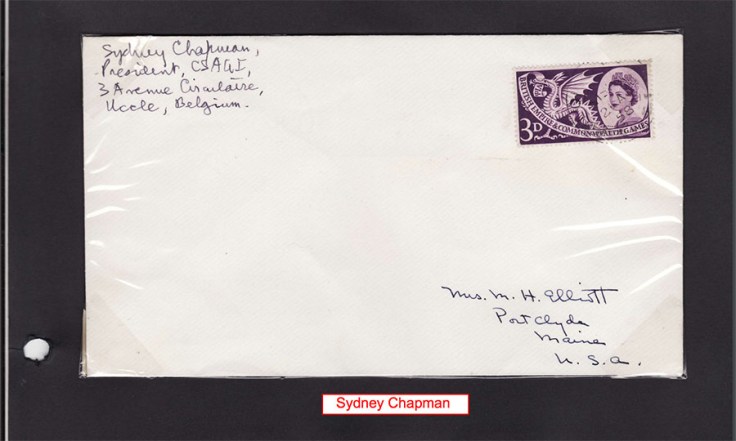 Sydney Chapman,
President, CSAGI,
3 Avenue Circulaire,
Uccle, Belgium.
BRITISH EMPIRE & COMMONWEALTH GAMES
3D
Mrs. M. H. Elliott
Port Clyde
Maine
U. S. A.
Sydney Chapman